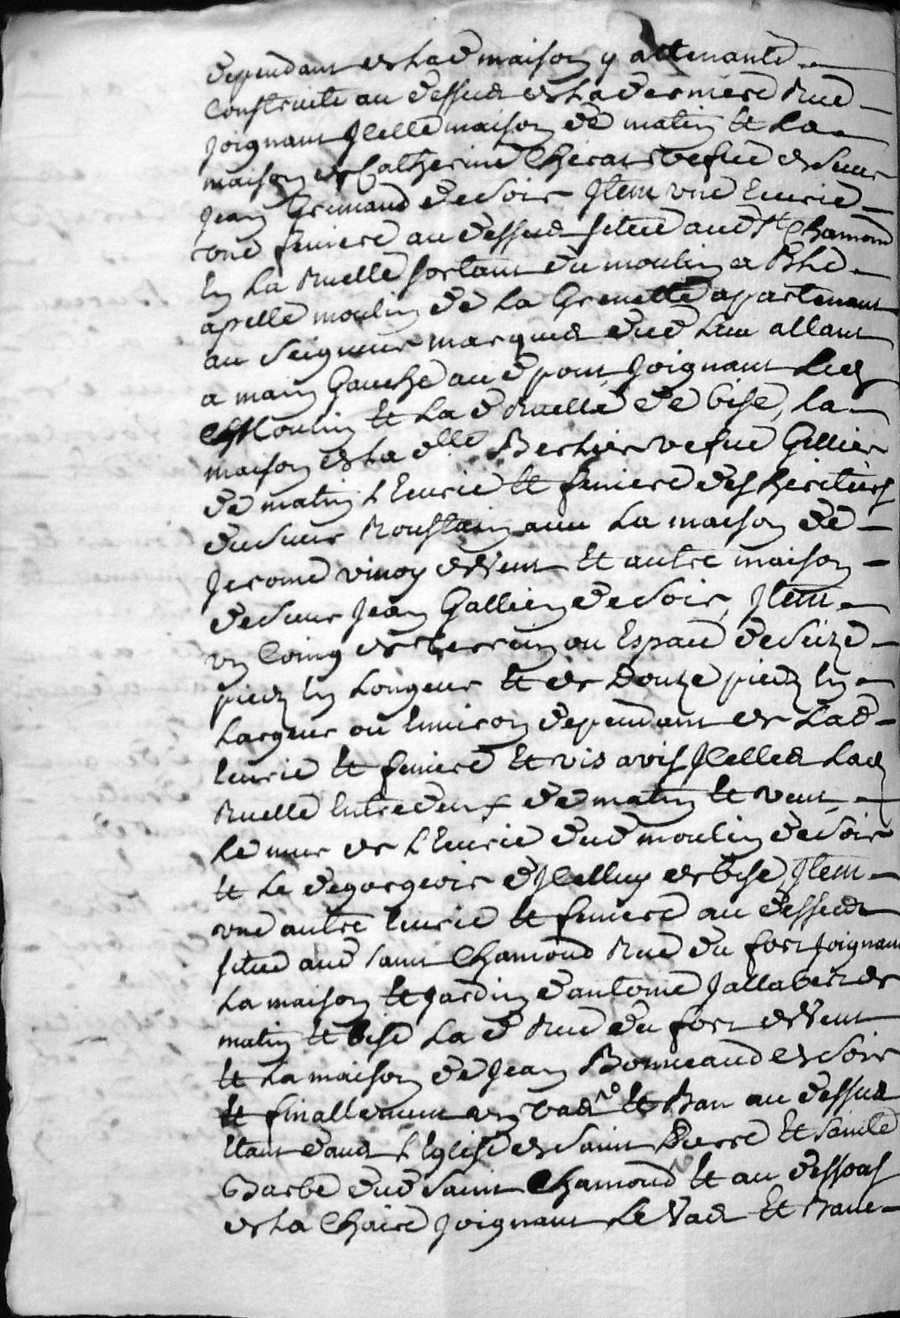 dependant de lad maison y attenante
construite au dessus de lad derniere Rue
joignant Jcelle maison de matin et la
maison de Catherine Chirat vefue de sieur
Jean Grimaud de soir Jtem vne Eurie
vne feniere au dessus situé aud St Chamond
En la Ruelle sortant du moulin a Bled
apellé moulin de la Grenette apartenant
au Seigneur marquis dud lieu allant
a main Gauche aud pont Joignant led
Moulin et lad Ruelle de bise, la
maison de la dlle Berhier vefue Gillier
de matin l'Eurie et feniere des heritiers
du sieur Roustain auec la maison de
Jerome vinoy de vent et autre maison
de sieur Jean Gallien de soir, Jtem
vn Coing de terrain ou Espace de seize
pieds En Longeur et de Douze pieds En
Largeur ou Enuiron dependant de lad
Eurie et feniere et vis a vis Jcelles lad
Ruelle Entredeux de matin et vent
le mur de l'Eurie dud moulin de soir
et le degorgeoir d'Jcelluy de bise Jtem
vne autre Eurie et feniere au dessus
situé aud saint Chamond Rue du fort joignant
la maison et Jardin d'antoine Jallabert de
matin et bise lad Rue du fort de vent
et la maison de Jean Bonneaud de soir
et finallement vn vas et Ban au dessus
Etant dans l'Eglise de saint Pierre et sainte
Barbe dud saint Chamond et au dessous
de la Chaire joignant le vas et Banc